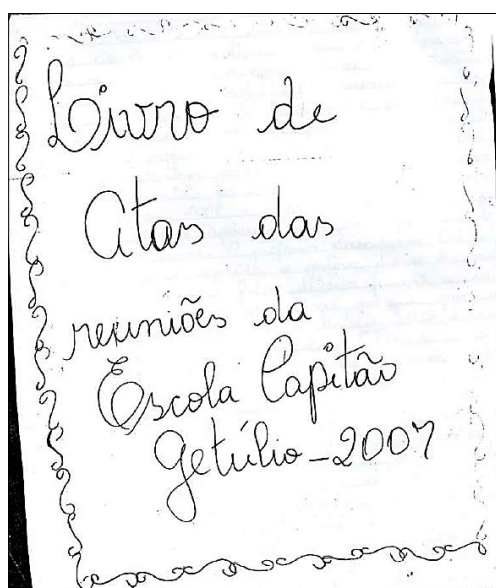 Livro de
Atas das
reuniões da
Escola Capitão
Getúlio - 2007